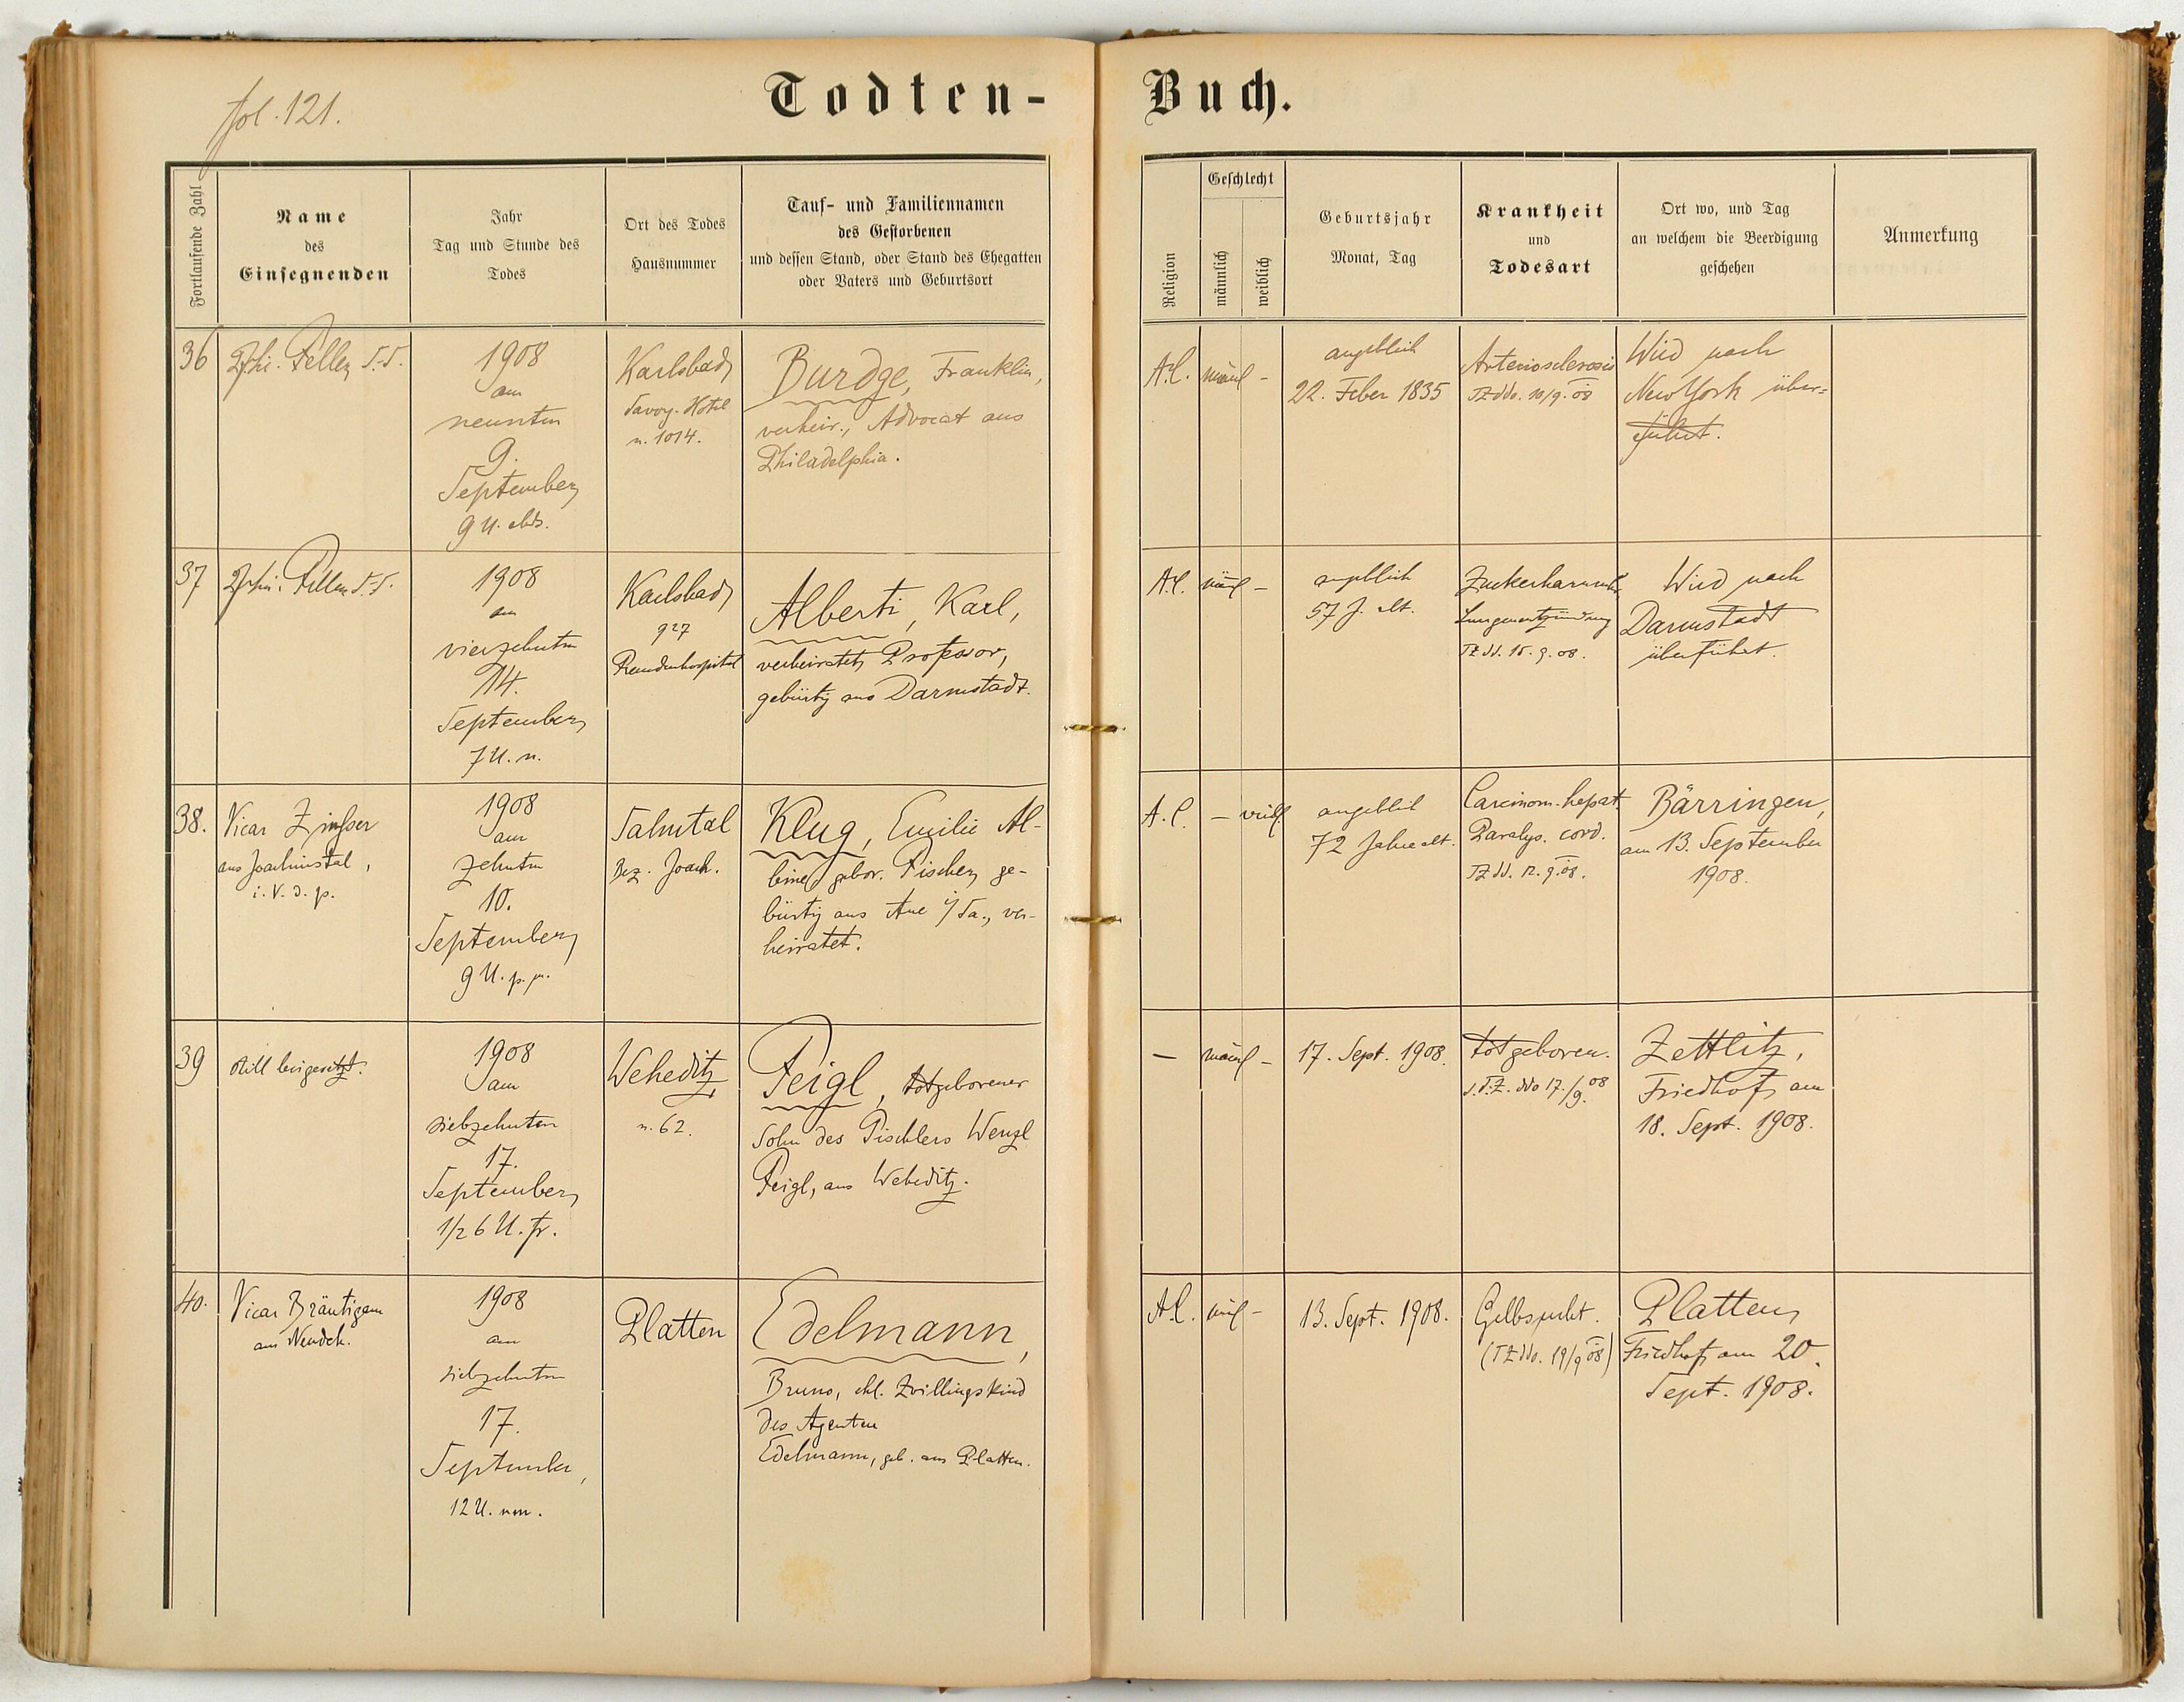 fol. 121.
Todten-Buch.
Fortlaufende Zahl
Name
des
Einsegnenden
Jahr
Tag und Stunde des
Todes
Ort des Todes
Hausnummer
Tauf- und Familiennamen
des Gestorbenen
und dessen Stand, oder Stand des Ehegatten
oder Vaters und Geburtsort
Religion
Geschlecht
männlich
weiblich
Geburtsjahr
Monat, Tag
Krankheit
und
Todesart
Ort wo, und Tag
an welchem die Beerdigung
geschehen
Anmerkung
36
1908
am
neunten
9.
September
9 U. abds.
Karlsbad
Savoy-Hotel
n. 1014.
Burdge, Franklin,
verheir., Advocat aus
Philadelphia.
A.C.
männl -
angeblich
22. Feber 1835
Arteriosclerosis
TZ ddo. 10/9. 08
Wird nach
New York über=
führt.
37
1908
am
vierzehnten
14.
September
7 U. n.
Karlsbad
927
Fremdenhospital
Alberti, Karl,
verheirateter Professor,
gebürtig aus Darmstadt.
A.C.
männl -
angeblich
57 J. alt.
Zuckerharnruhr
Lungenentzündung
TZ dd. 15. 9. 08.
Wird nach
Darmstadt
überführt.
38.
Vicar Zinsser
aus Joachimstal,
i. V. d. p.
1908
am
zehnten
10.
September
9 U. p. m.
Salmtal
Bez. Joach.
Klug, Emilie Al-
bine gebor. Fischer, ge-
bürtig aus Aue i/Sa., ver-
heiratet.
A.C.
- weibl.
angeblich
72 Jahre alt.
Carcinom. hepat.
Paralys. cord.
TZ dd. 12. 9. 08.
Bärringen,
am 13. September
1908.
39
still beigesetzt.
1908
am
siebzehnten
17.
September
1/2 6 U. fr.
Weheditz
n. 62.
Feigl, totgeborener
Sohn des Tischlers Wenzl
Feigl, aus Weheditz.
-
männl -
17. Sept. 1908.
totgeboren.
ddo 17./9. 08
Zettlitz,
Friedhof, am
18. Sept. 1908.
40.
Vicar Bräutigam
aus Neudek.
1908
am
siebzehnten
17.
September,
12 U. nm.
Platten
Edelmann,
Bruno, ehl. Zwillingskind
des Agenten
Edelmann, geb. aus Platten.
A.C.
männl -
13. Sept. 1908.
Gelbsucht.
(TZ ddo. 19/9 08)
Platten,
Friedhof, am 20.
Sept. 1908.